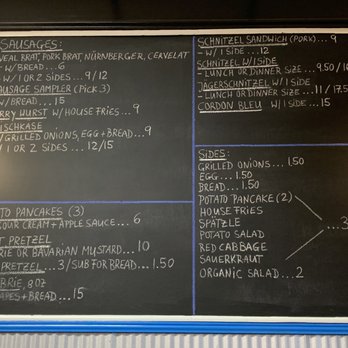 SAUSAGES:
VEAL BRAT, PORK BRAT, NÜRNBERGER, CERVELAT
W/BREAD...6
W/1 OR 2 SIDES...9/12
SAUSAGE SAMPLER (PICK 3)
W/BREAD...15
RRY WURST W/HOUSE FRIES... 9
ISCHKÄSE
/GRILLED ONIONS, EGG+BREAD...9
/1 OR 2 SIDES ... 12/15
TO PANCAKES (3)
OUR CREAM + APPLE SAUCE... 6
T PRETZEL
RIE OR BAVARIAN MUSTARD... 10
PRETZEL...3/SUB FOR BREAD... 1.50
BRIE 8 OZ
APES+BREAD...15
SCHNITZEL SANDWICH (PORK)... 9
- W/1 SIDE... 12
SCHNITZEL W/1 SIDE
- LUNCH OR DINNER SIZE... 9.50/16
JÄGERSCHNITZEL W/1 SIDE
- LUNCH OR DINNER SIZE... 11/17.5
CORDON BLEU W/1 SIDE... 15
SIDES:
GRILLED ONIONS... 1.50
EGG... 1.50
BREAD... 1.50
POTATO PANCAKE (2)
HOUSE FRIES
SPÄTZLE
POTATO SALAD ...3
RED CABBAGE
SAUERKRAUT
ORGANIC SALAD...2